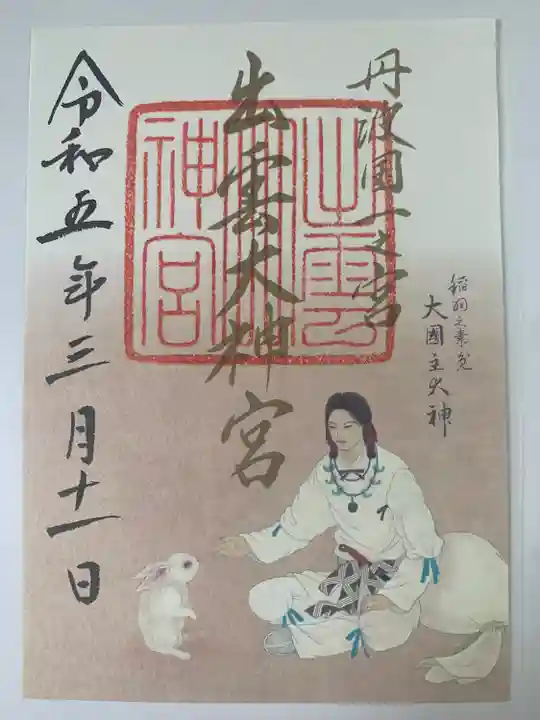 丹波國一之宮
出雲大神宮
出雲大神宮
令和五年三月十一日
稲羽之素兎
大國主大神